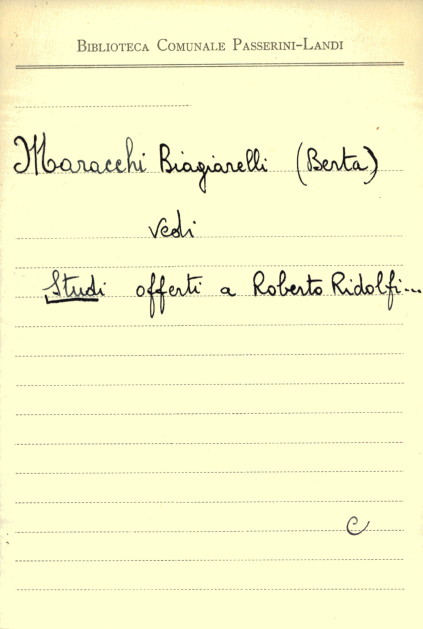 BIBLIOTECA COMUNALE PASSERINI-LANDI
Maracchi Biagiarelli (Berta)
vedi
Studi offerti a Roberto Ridolfi...
C